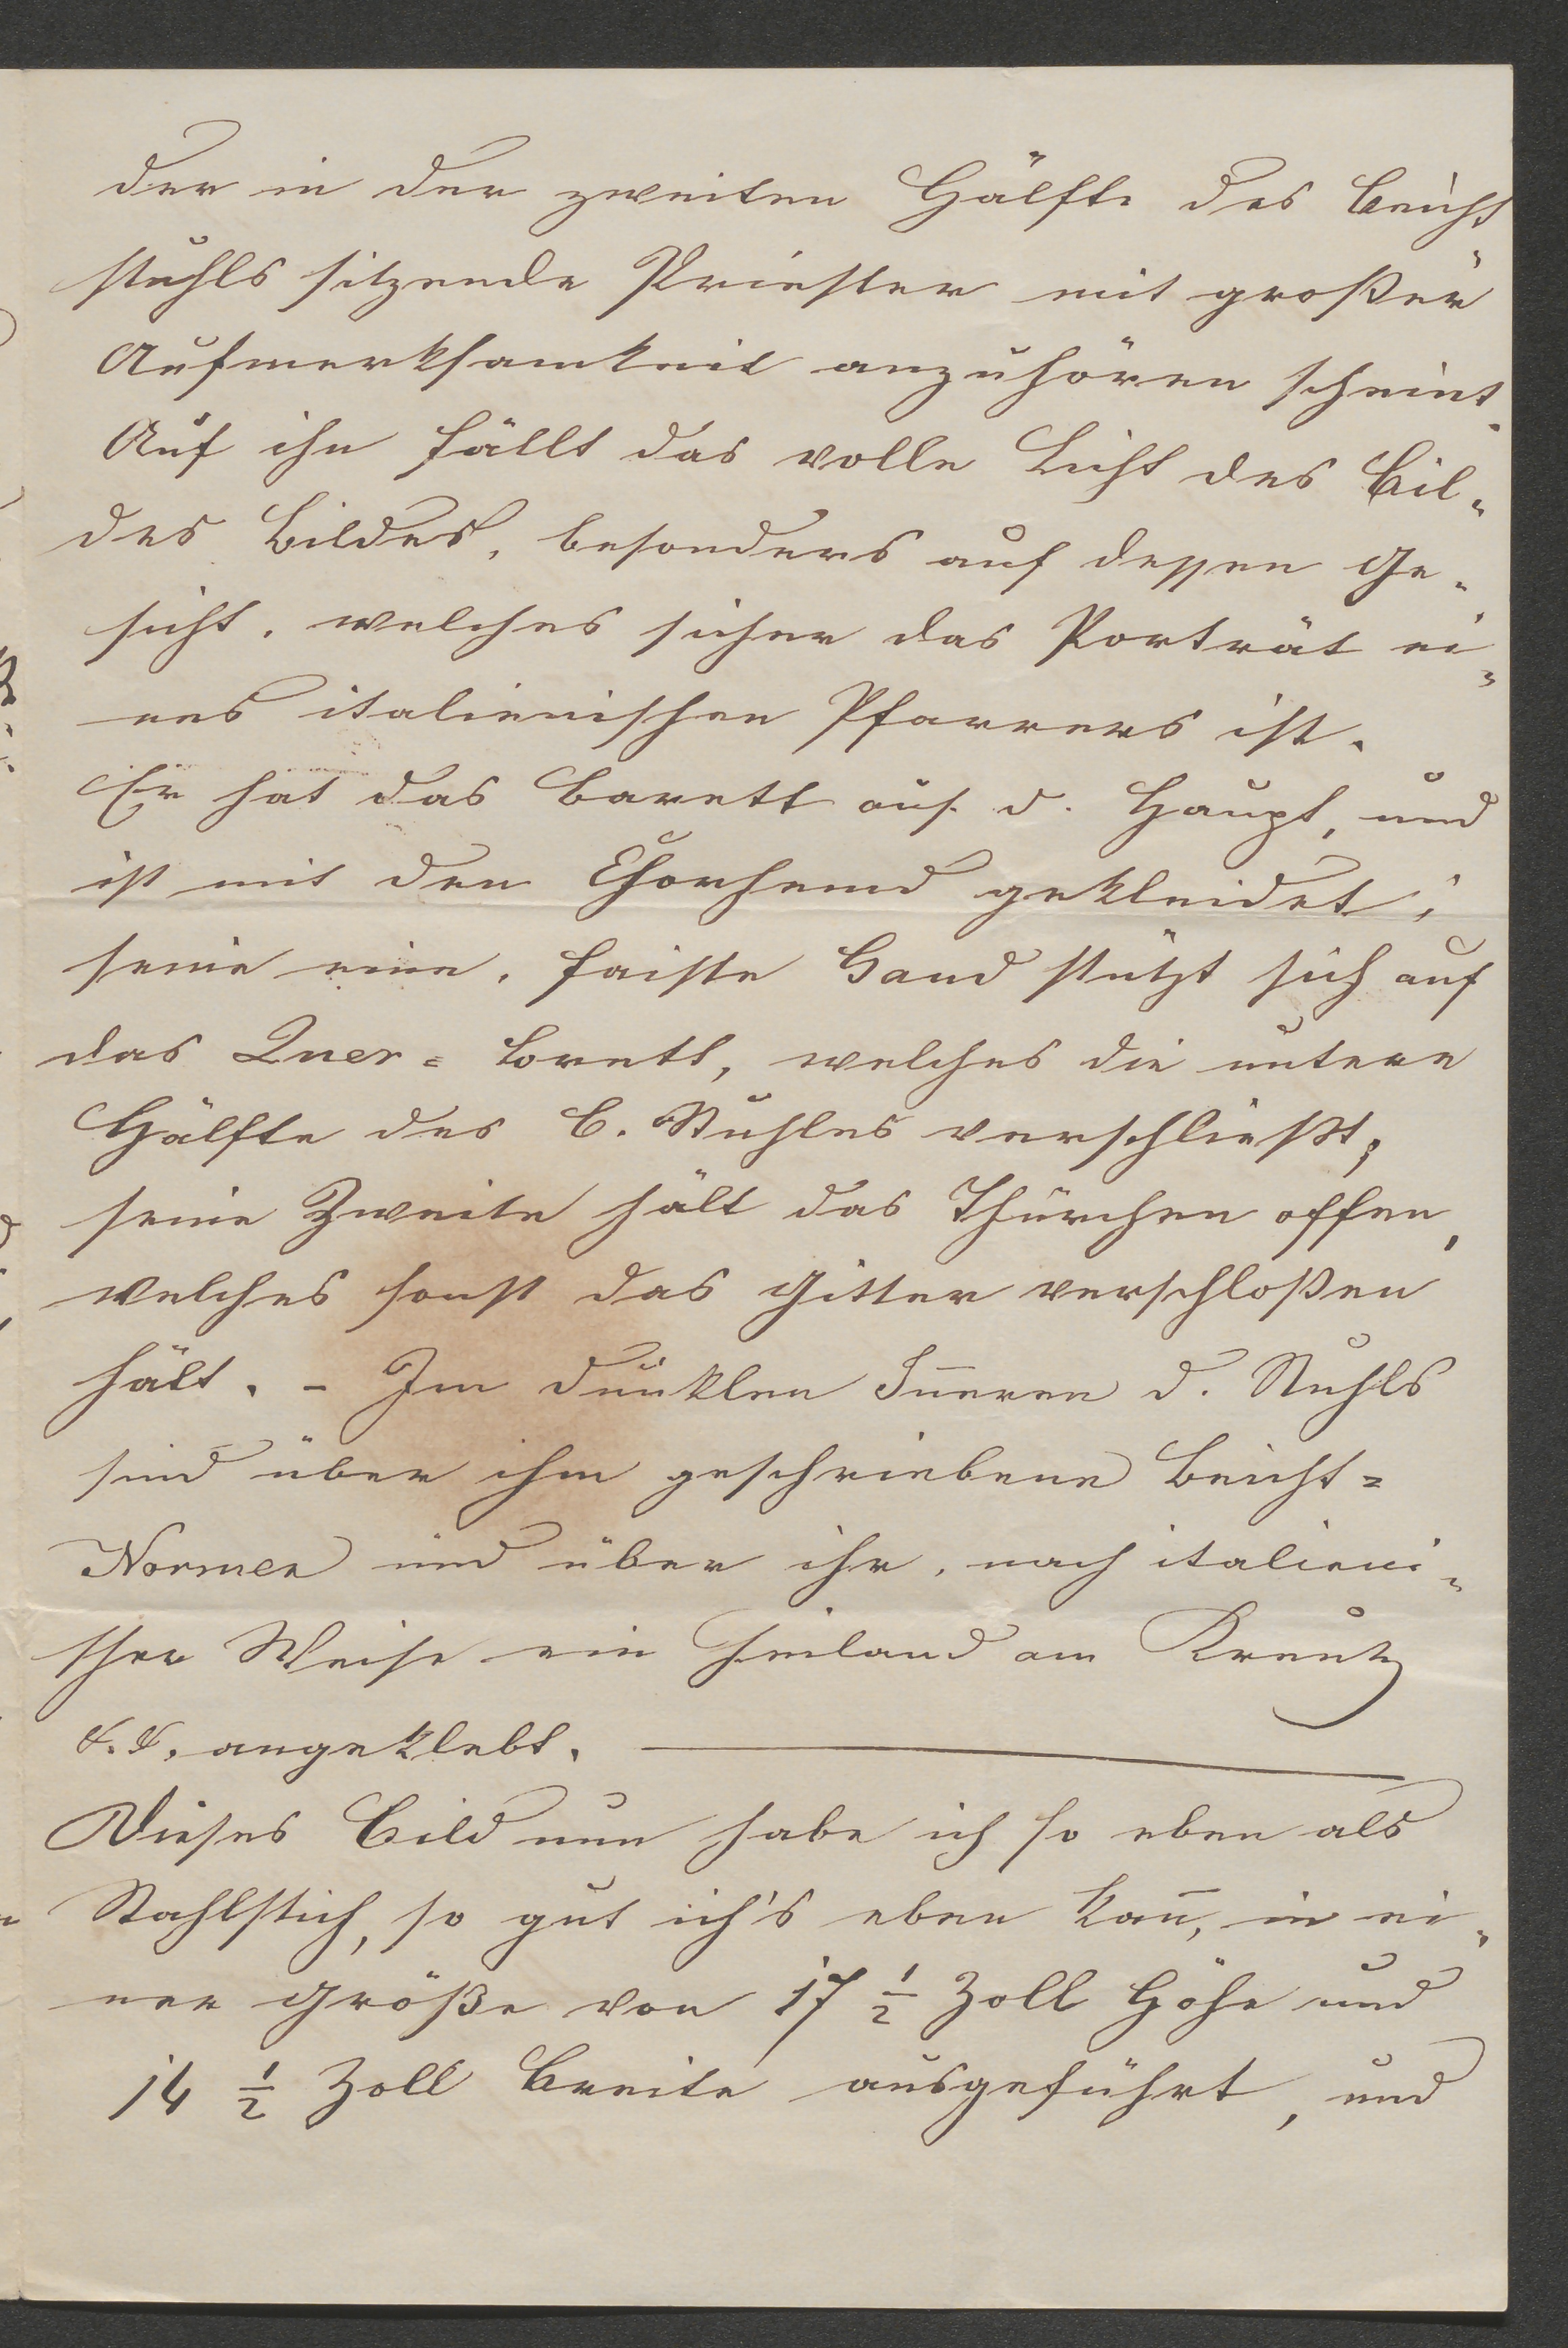 der in der zweiten Hälfte des Beicht
stuhls sitzende Priester mit großer
Aufmerksamkeit anzuhören scheint.
Auf ihn fällt das volle Licht des Bil-
des Bildes, besonders auf dessen Ge-
sicht, welches sicher das Porträt ei-
nes italienischen Pfarrers ist.
Er hat das Barett auf d. Haupt, und
ist mit den Chorhemd gekleidet;
seine eine, faiste Hand stützt sich auf
das Quer=brett, welches die untere
Hälfte des B. Stuhles verschließt;
seine Zweite hält das Thürchen offen,
welches sonst das Gitter verschloßen
hält. – Im dunklen Iñeren d. Stuhls
sind über ihm geschriebene Beicht=
Normen und über ihr, nach italieni-
scher Weise ein Heiland am Kreutz
&. &. angeklebt. ———
Dieses Bild nun habe ich so eben als
Stahlstich, so gut ich's eben kañ, in ei-
ner Größe von 17 1/2 Zoll Höhe und
14 1/2 Zoll Breite ausgeführt, und